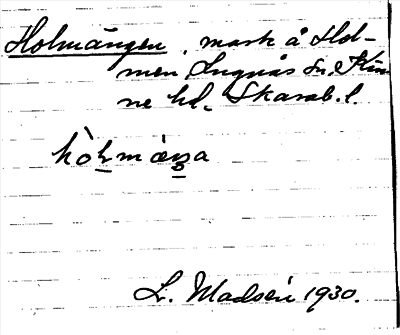 Holmängen, mark å Hol-
men Ingnås sn. Kin
ne hd. Skarab. l.
hòl̠m äŋ̠a
L. Madsén 1930.